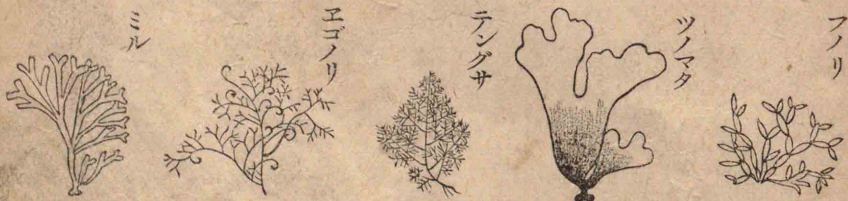 フノリ
ツノマタ
テングサ
ヱゴノリ
ミル